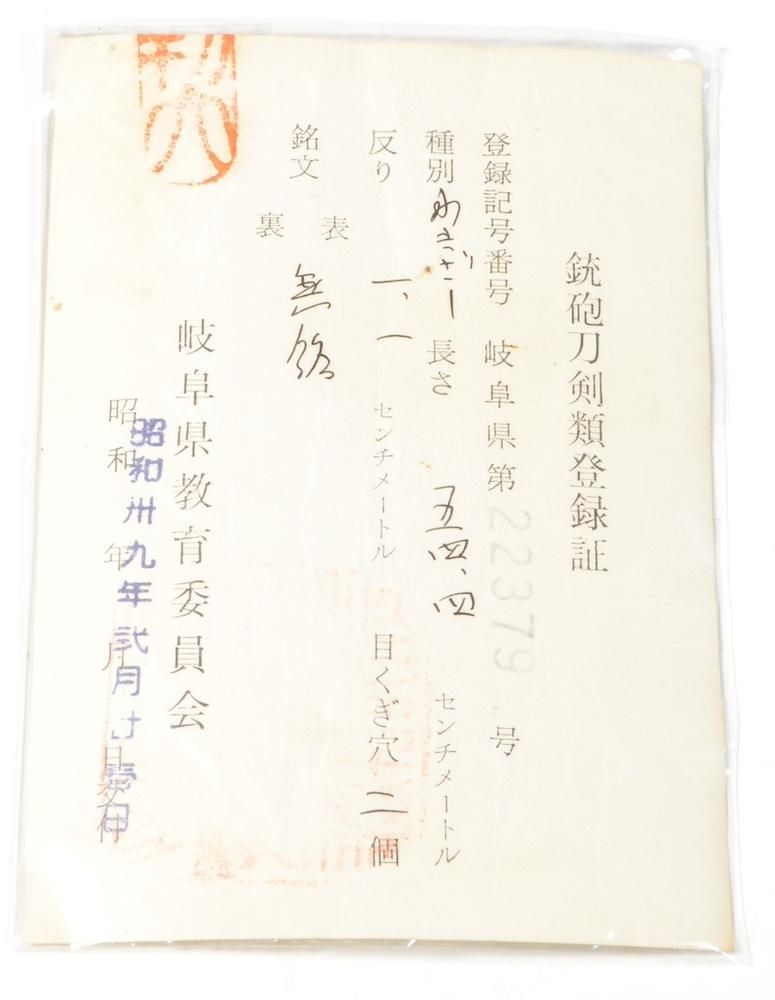 銃砲刀剣類登録証
登録記号番号 岐阜県第22379号
種別 わきざし 長さ 五四、四 センチメートル
反り 一、一 センチメートル 目くぎ穴 二個
銘文 表 無銘
裏
岐阜県教育委員会
昭和 年 月 日交付
昭和卅九年弐月廿壱日